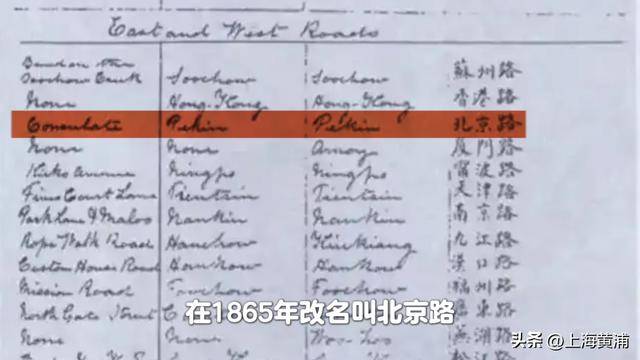 East and West Roads
Soochow Creek Soochow Soochow 蘇州路
None Hong-Kong Hong-Kong 香港路
Consulate Pekin Pekin 北京路
None None Amoy 厦門路
Kirks Avenue Ningpo Ningpo 寧波路
Fives Court Lane Tientsin Tientsin 天津路
Park Lane & Maloo Nankin Nankin 南京路
Rope Walk Road Hanchow Kiukiang 九江路
Custom House Road Hankow Hankow 漢口路
Mission Road Foochow Foochow 福州路
North Gate Street 廣東路
None None Woo-hoo 蕪湖路
在1865年改名叫北京路
头条 @上海黄浦